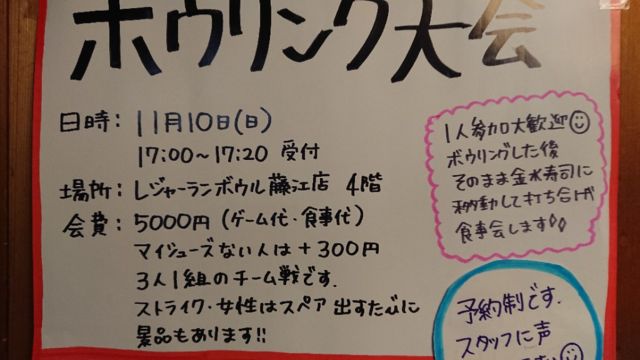 ボウリング大会
日時: 11月10日(日)
17:00~17:20 受付
場所: レジャーランボウル藤江店 4階
会費: 5000円(ゲーム代・食事代)
マイシューズない人は+300円
3人1組のチーム戦です.
ストライク・女性はスペア 出すたびに
景品もあります!!
1人参加大歓迎
ボウリングした後
そのまま金水寿司に
移動して打ち合げ
食事会します
予約制です.
スタッフに声